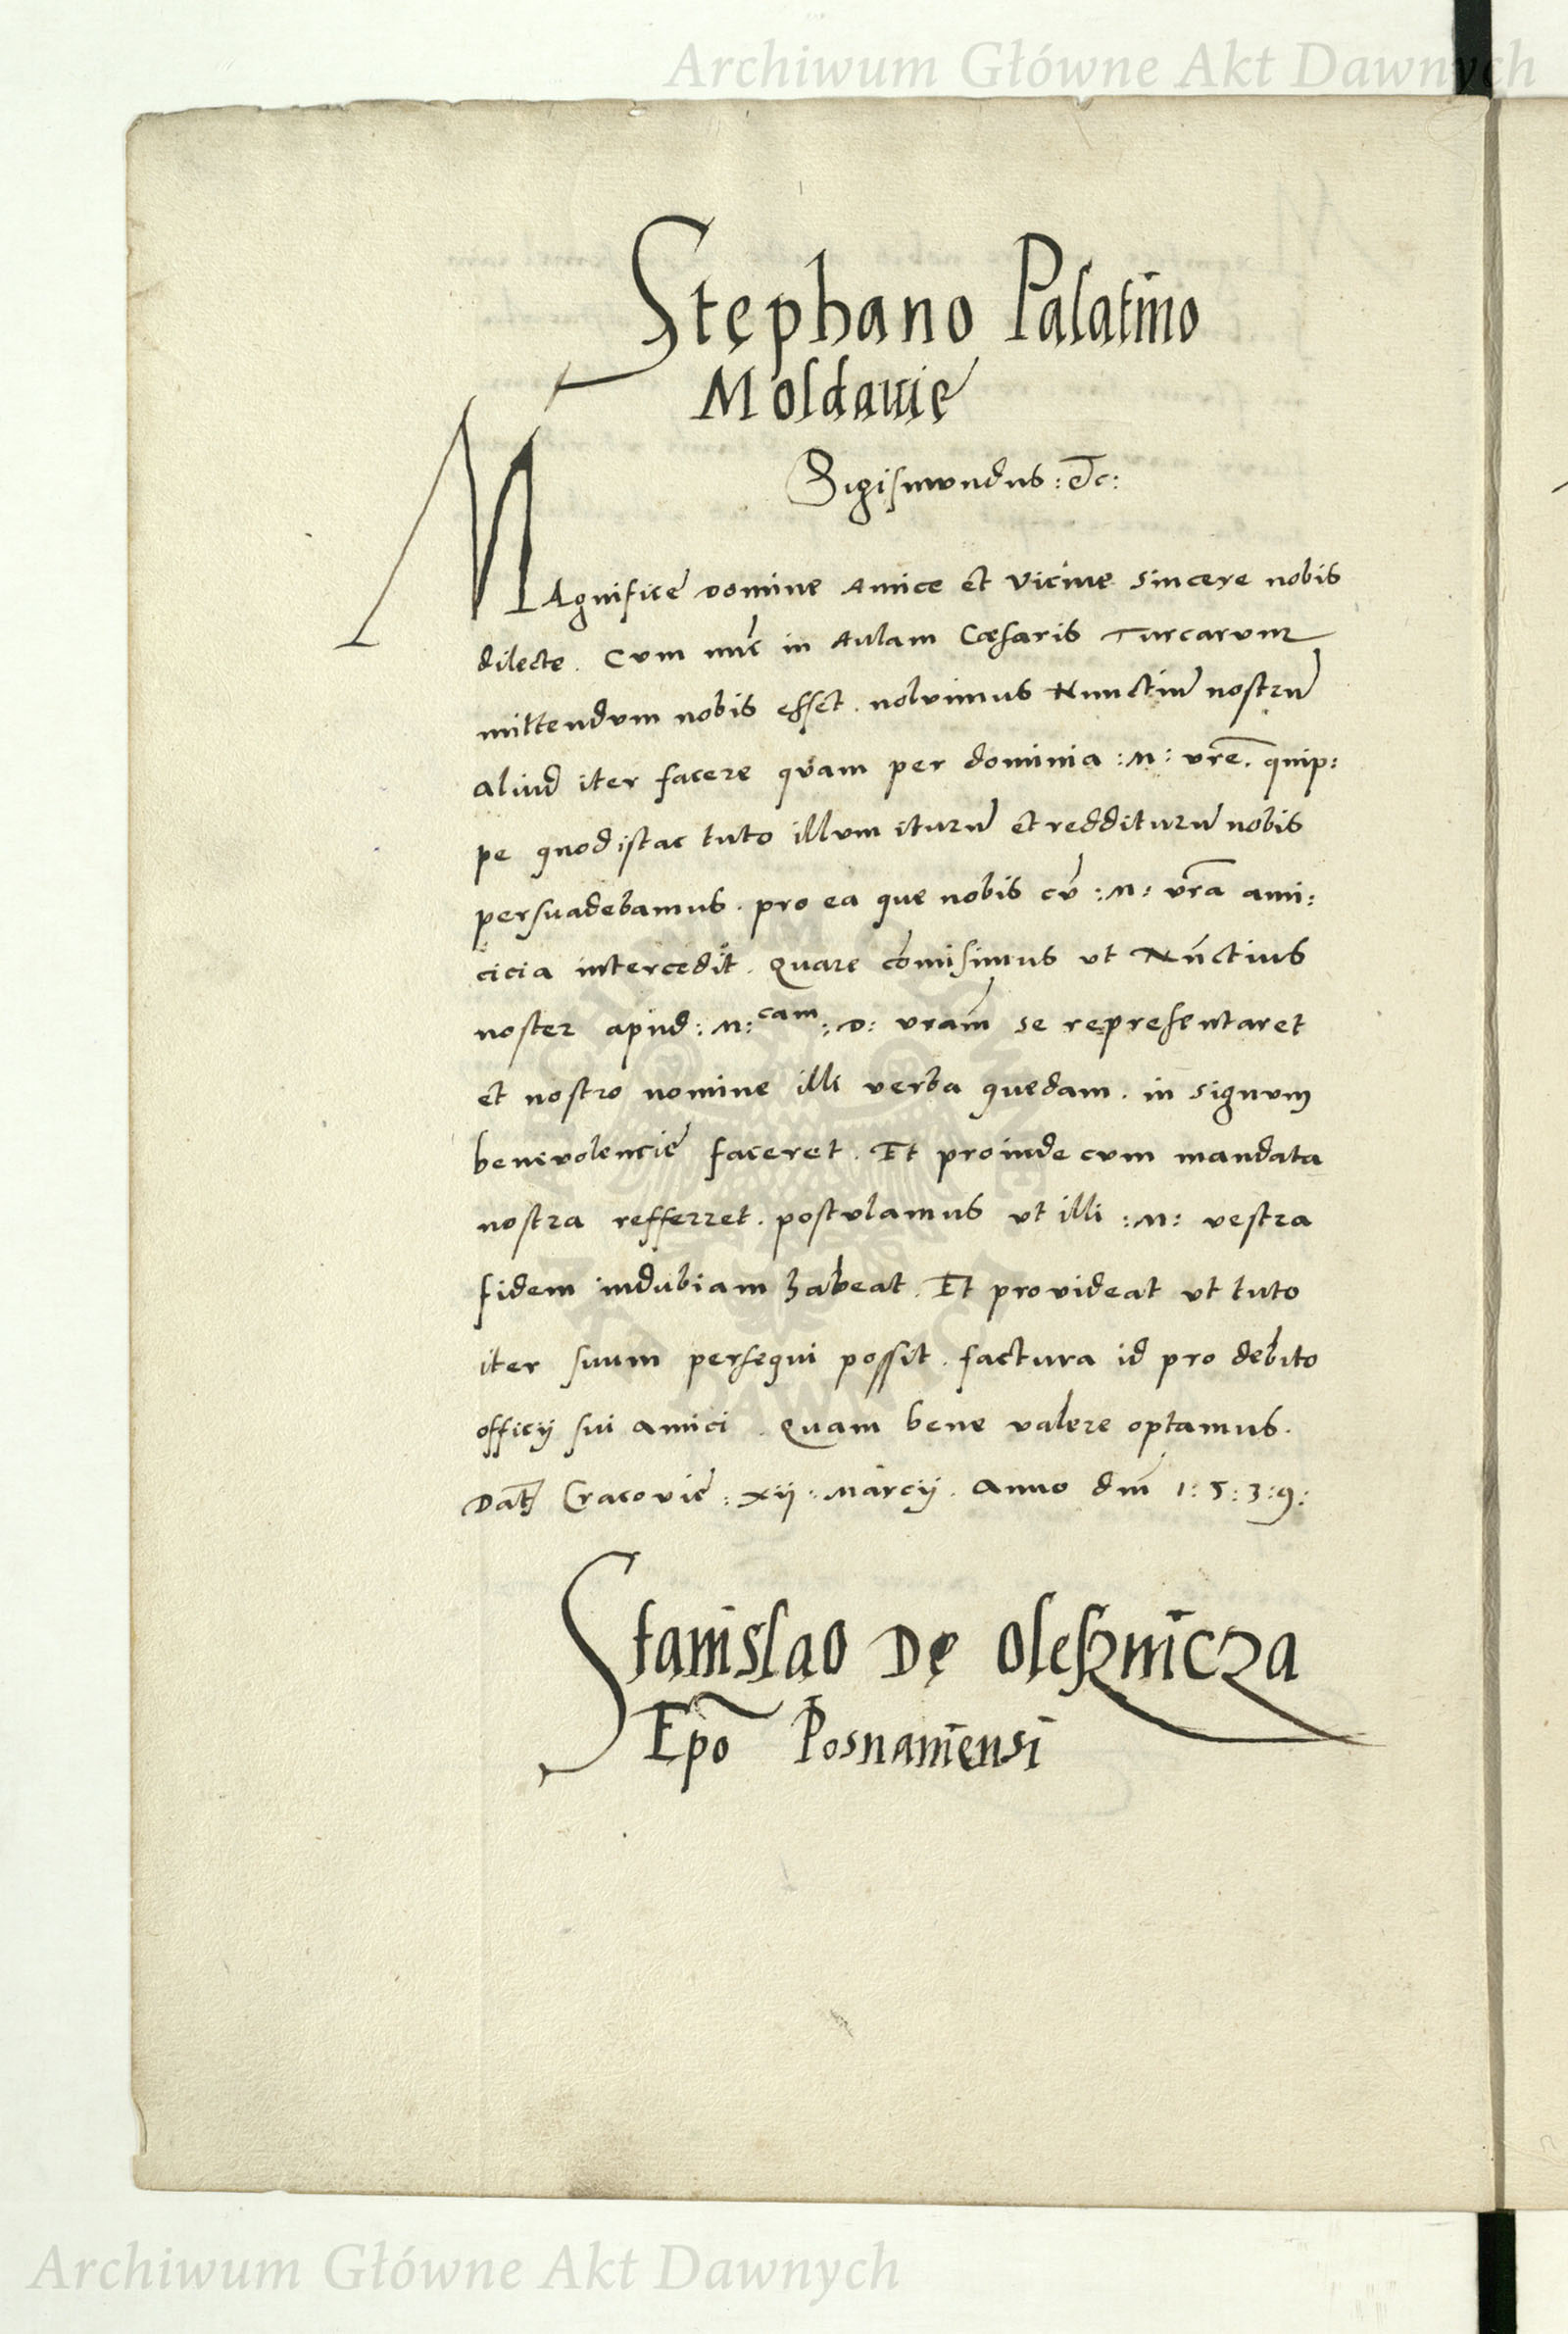 Archiwum Główne Akt Dawnych
Stephano Palatino
Moldauię
Sigismundus : etc :
MAgnificę domine Amice et Vicine sincere nobis
dilecte . Cum nũc in Aulam Cæsaris Turcarum
mittendum nobis esset . noluimus Nunctiũ nostrũ
aliud iter facere quam per dominia : M : vrẽ . quip :
pe quod istac tuto illum iturũ et redditurũ nobis
persuadebamus . pro ea que nobis cũ : M : vr̃a ami :
cicia intercedit . Quare cõmisimus ut Nũctius
noster apud : M : cam : D : vram̃ se representaret
et nostro nomine illi verba quedam . in signum
beneuolencię faceret . Et proinde cum mandata
nostra refferret . postulamus ut illi : M : vestra
fidem indubiam habeat . Et prouideat ut tuto
iter suum persequi possit . factura id pro debito
officij sui amici . Quam bene valere optamus .
Datʒ Cracovię : xij : Marcij . Anno dñi 1 : 5 : 3 : 9 :
Stanislao De Oleßnicza
Ep̃o Posnaniensi
Archiwum Główne Akt Dawnych